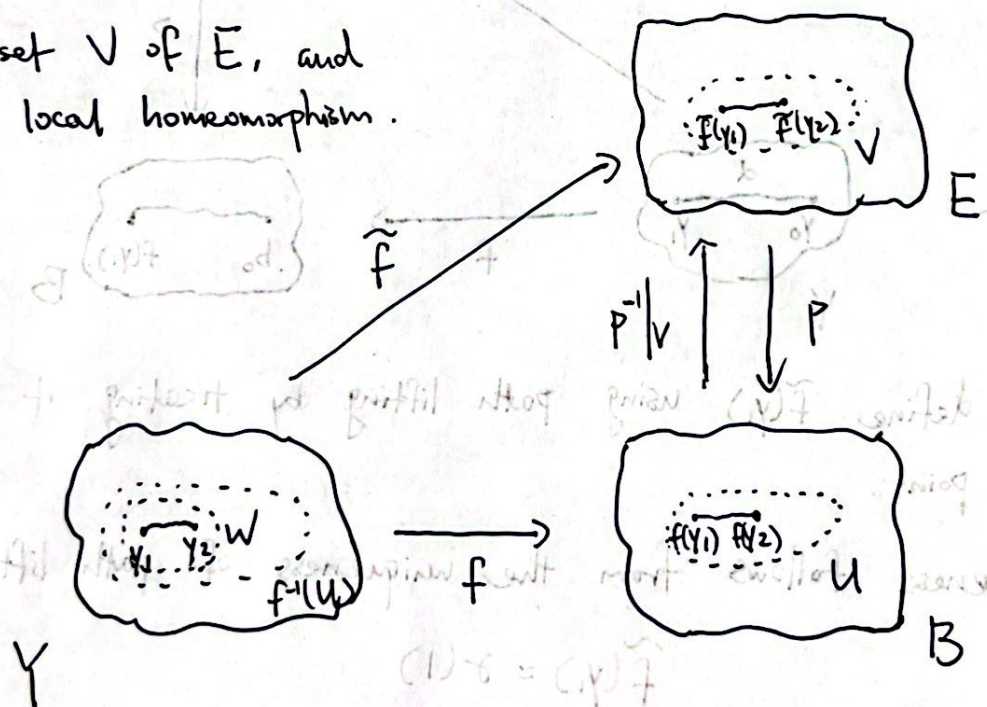 set V of E, and
local homeomorphism.
f̃(y₁) f̃(y₂) V
E
f̃
p⁻¹|v p
y₁ y₂ W
f⁻¹(U)
f
f(y₁) f(y₂)
U
Y
B